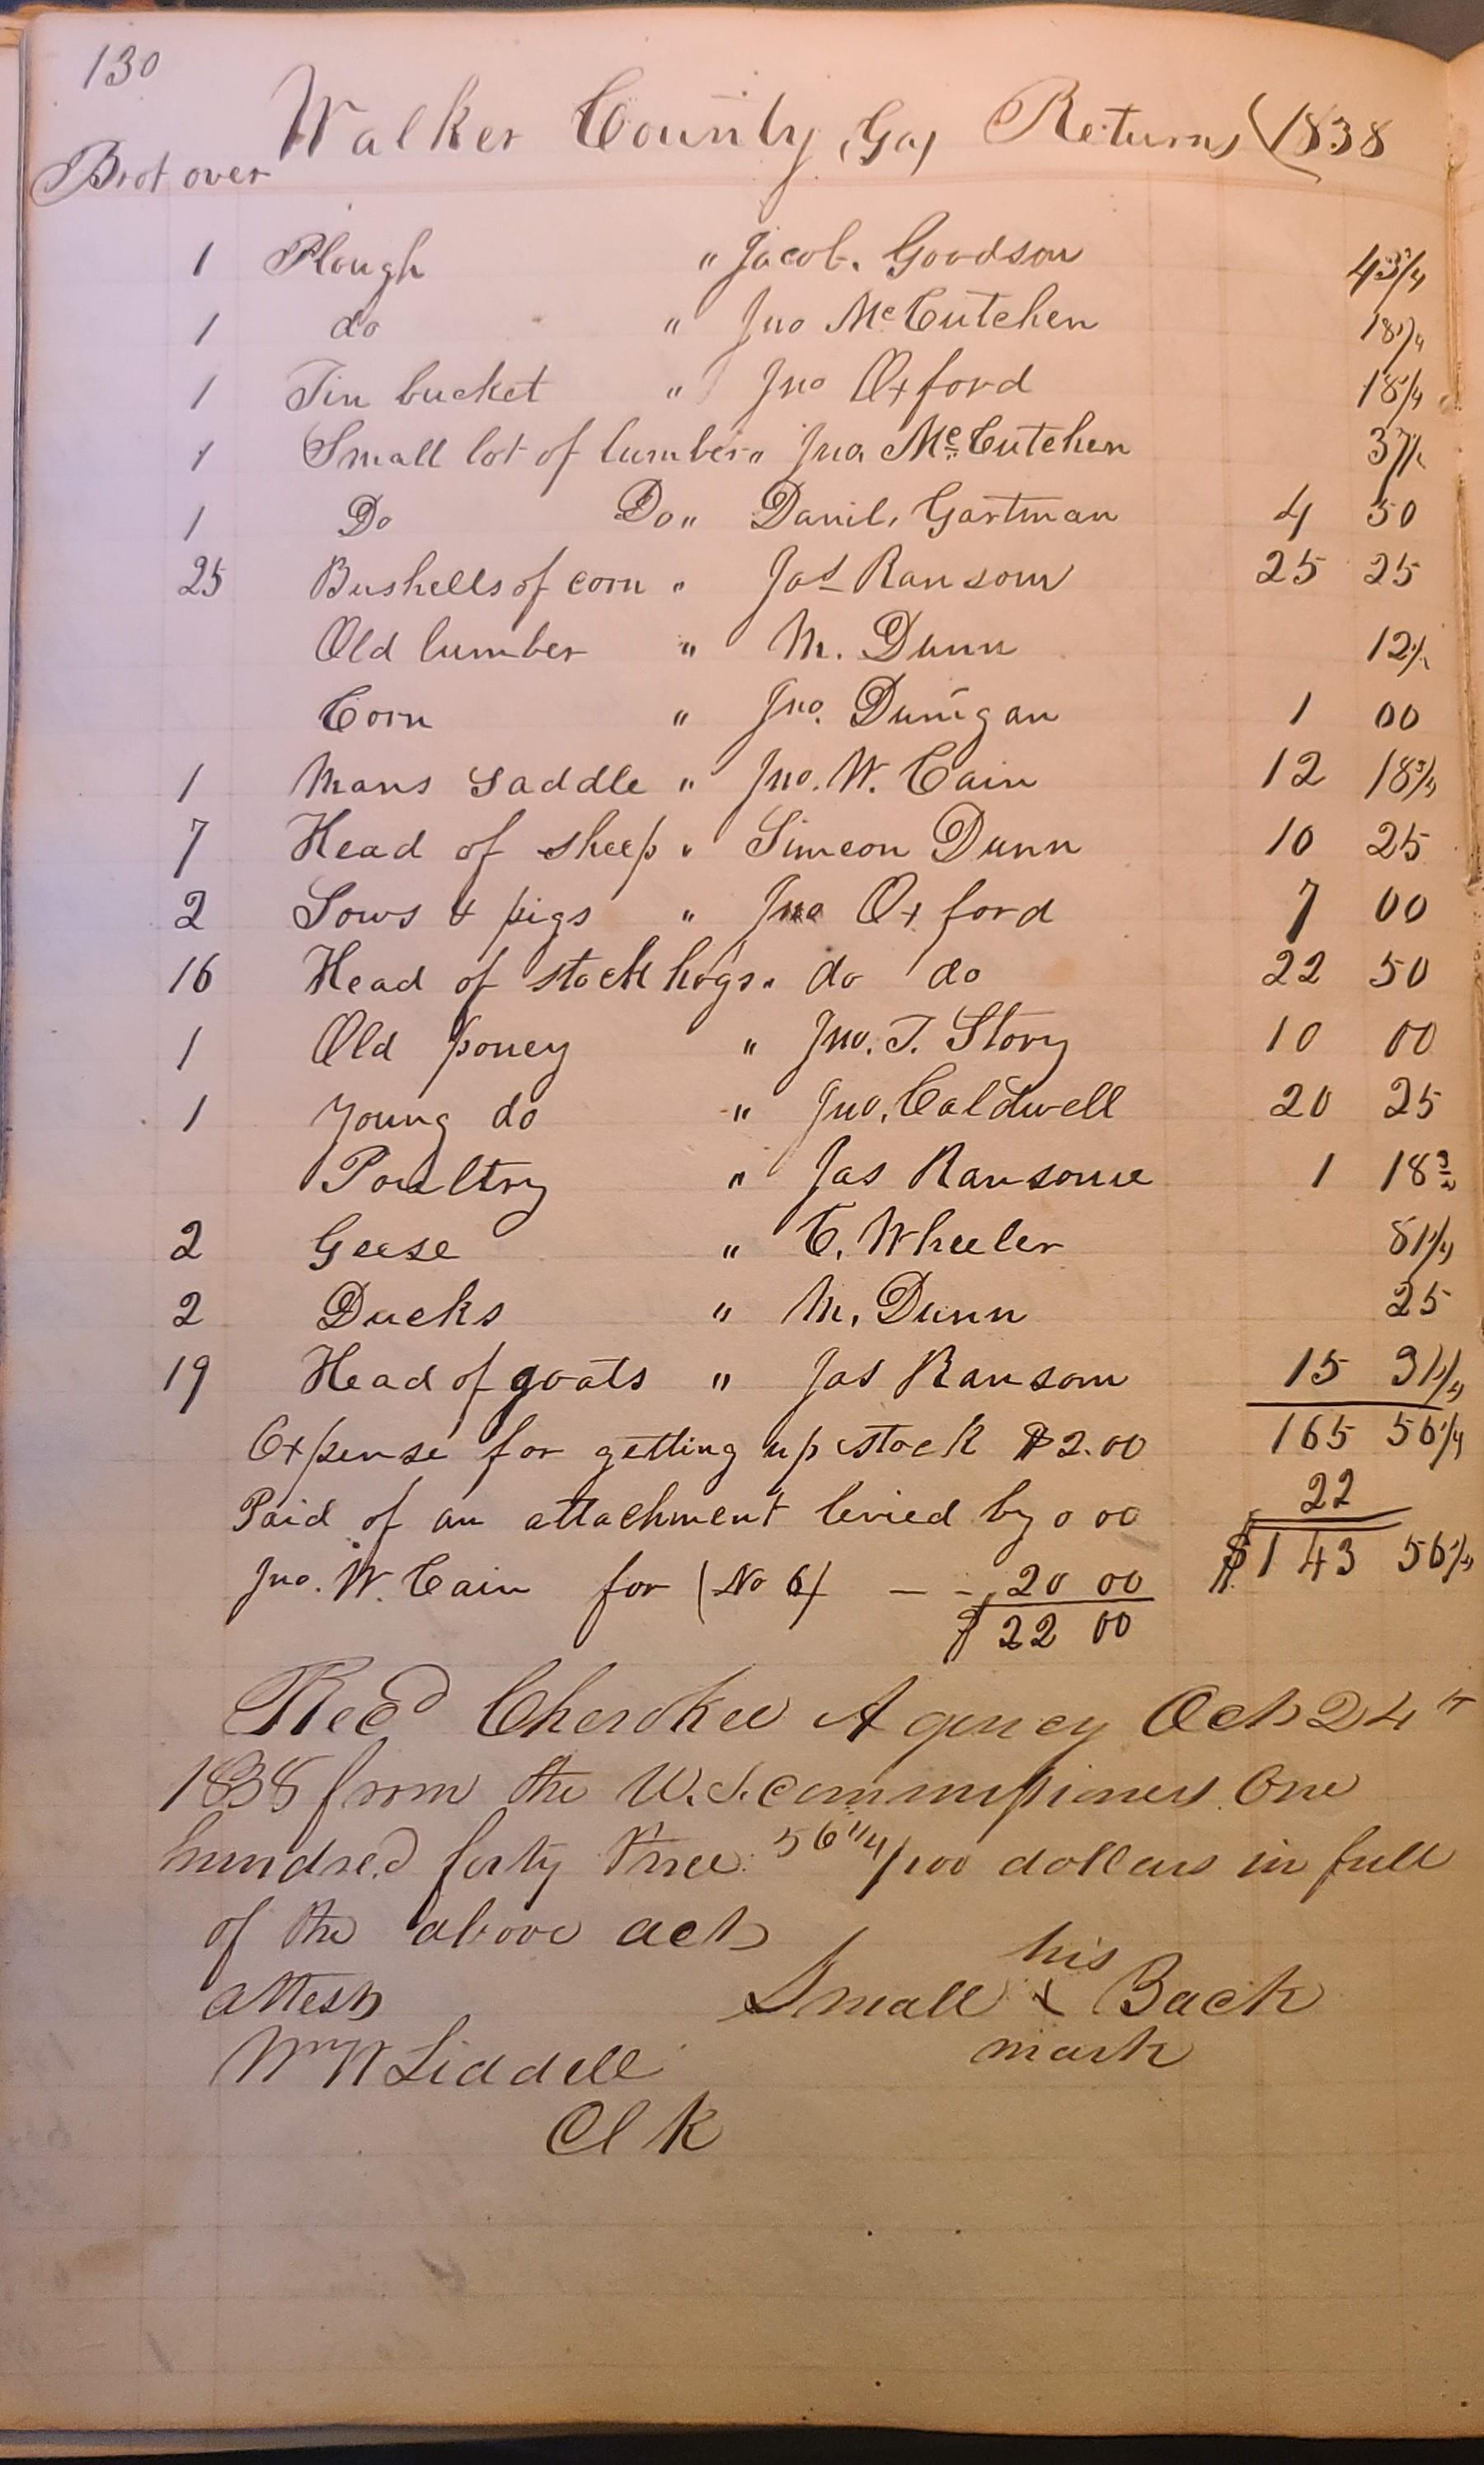 130
Walker County (Ga) Returns (1838
Brot over
1 Plough " Jacob. Goodson 43 3/4
1 do " Jno McCutchen 18 3/4
1 Tin bucket " Jno Oxford 18 3/4
1 Small lot of lumber " Jno. McCutchen 37 1/2
1 Do Do " Danil. Gartman 4 50
25 Bushells of corn " Jas Ransom 25 25
Old lumber " M. Dunn 12 1/2
Corn " Jno. Dunigan 1 00
1 Mans saddle " Jno. W. Cain 12 18 3/4
7 Head of sheep " Simeon Dunn 10 25
2 Sows & pigs " Jno Oxford 7 00
16 Head of stock hogs " do do 22 50
1 Old poney " Jno. T. Story 10 00
1 Young do " Jno. Caldwell 20 25
Poultry " Jas Ransome 1 18 3/4
2 Geese " C. Wheeler 81 1/4
2 Ducks " M. Dunn 25
19 Head of goats " Jas Ransom 15 31 1/4
Expense for getting up stock $2.00 165 56 1/4
Paid of an attachment levied by 0 00 22
Jno. W. Cain for (No 6) – – 20 00 $143 56 1/4
$22 00
Recd Cherokee Agency Oct 24th
1838 from the U.S. commissioners One
hundred forty three 56 1/4/100 dollars in full
of the above act
attest his
Small x Back
Wm W Liddell mark
Clk